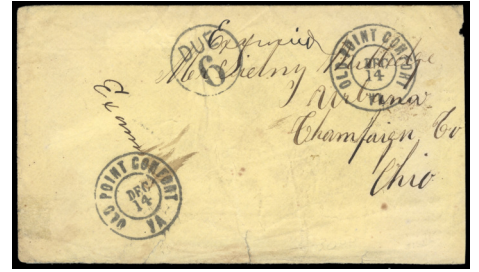 DUE 6
Examined
OLD POINT COMFORT VA
DEC 14
Urbana
Champaign Co
Ohio
Exam
OLD POINT COMFORT VA
DEC 14